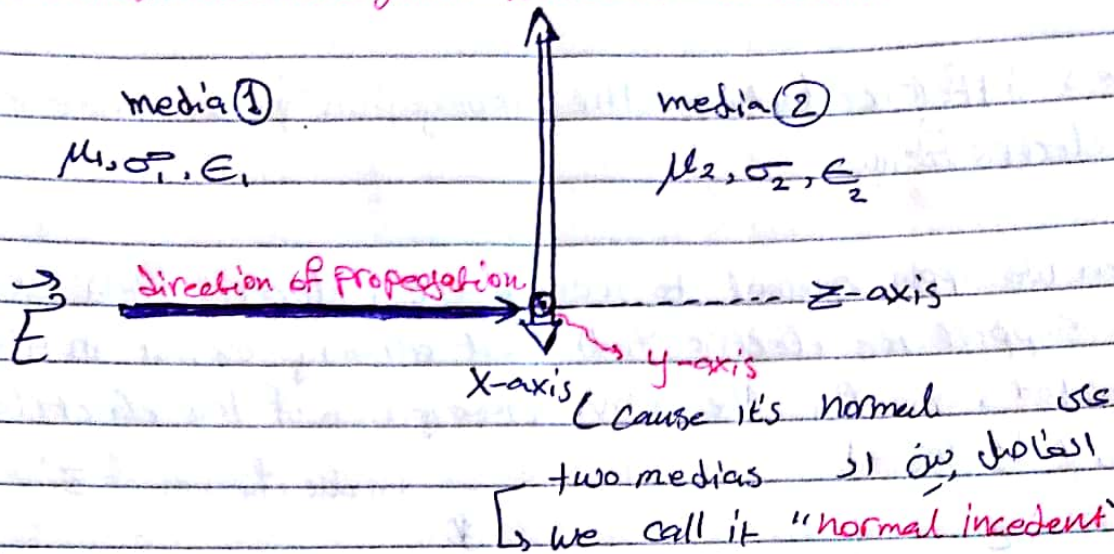 media ① media ②
μ₁, σ₁, ε₁ μ₂, σ₂, ε₂
direction of propegation z-axis
E
y-axis
X-axis
( cause it's normal على
two medias الفاصل بين ال
↳ we call it "normal incedent"